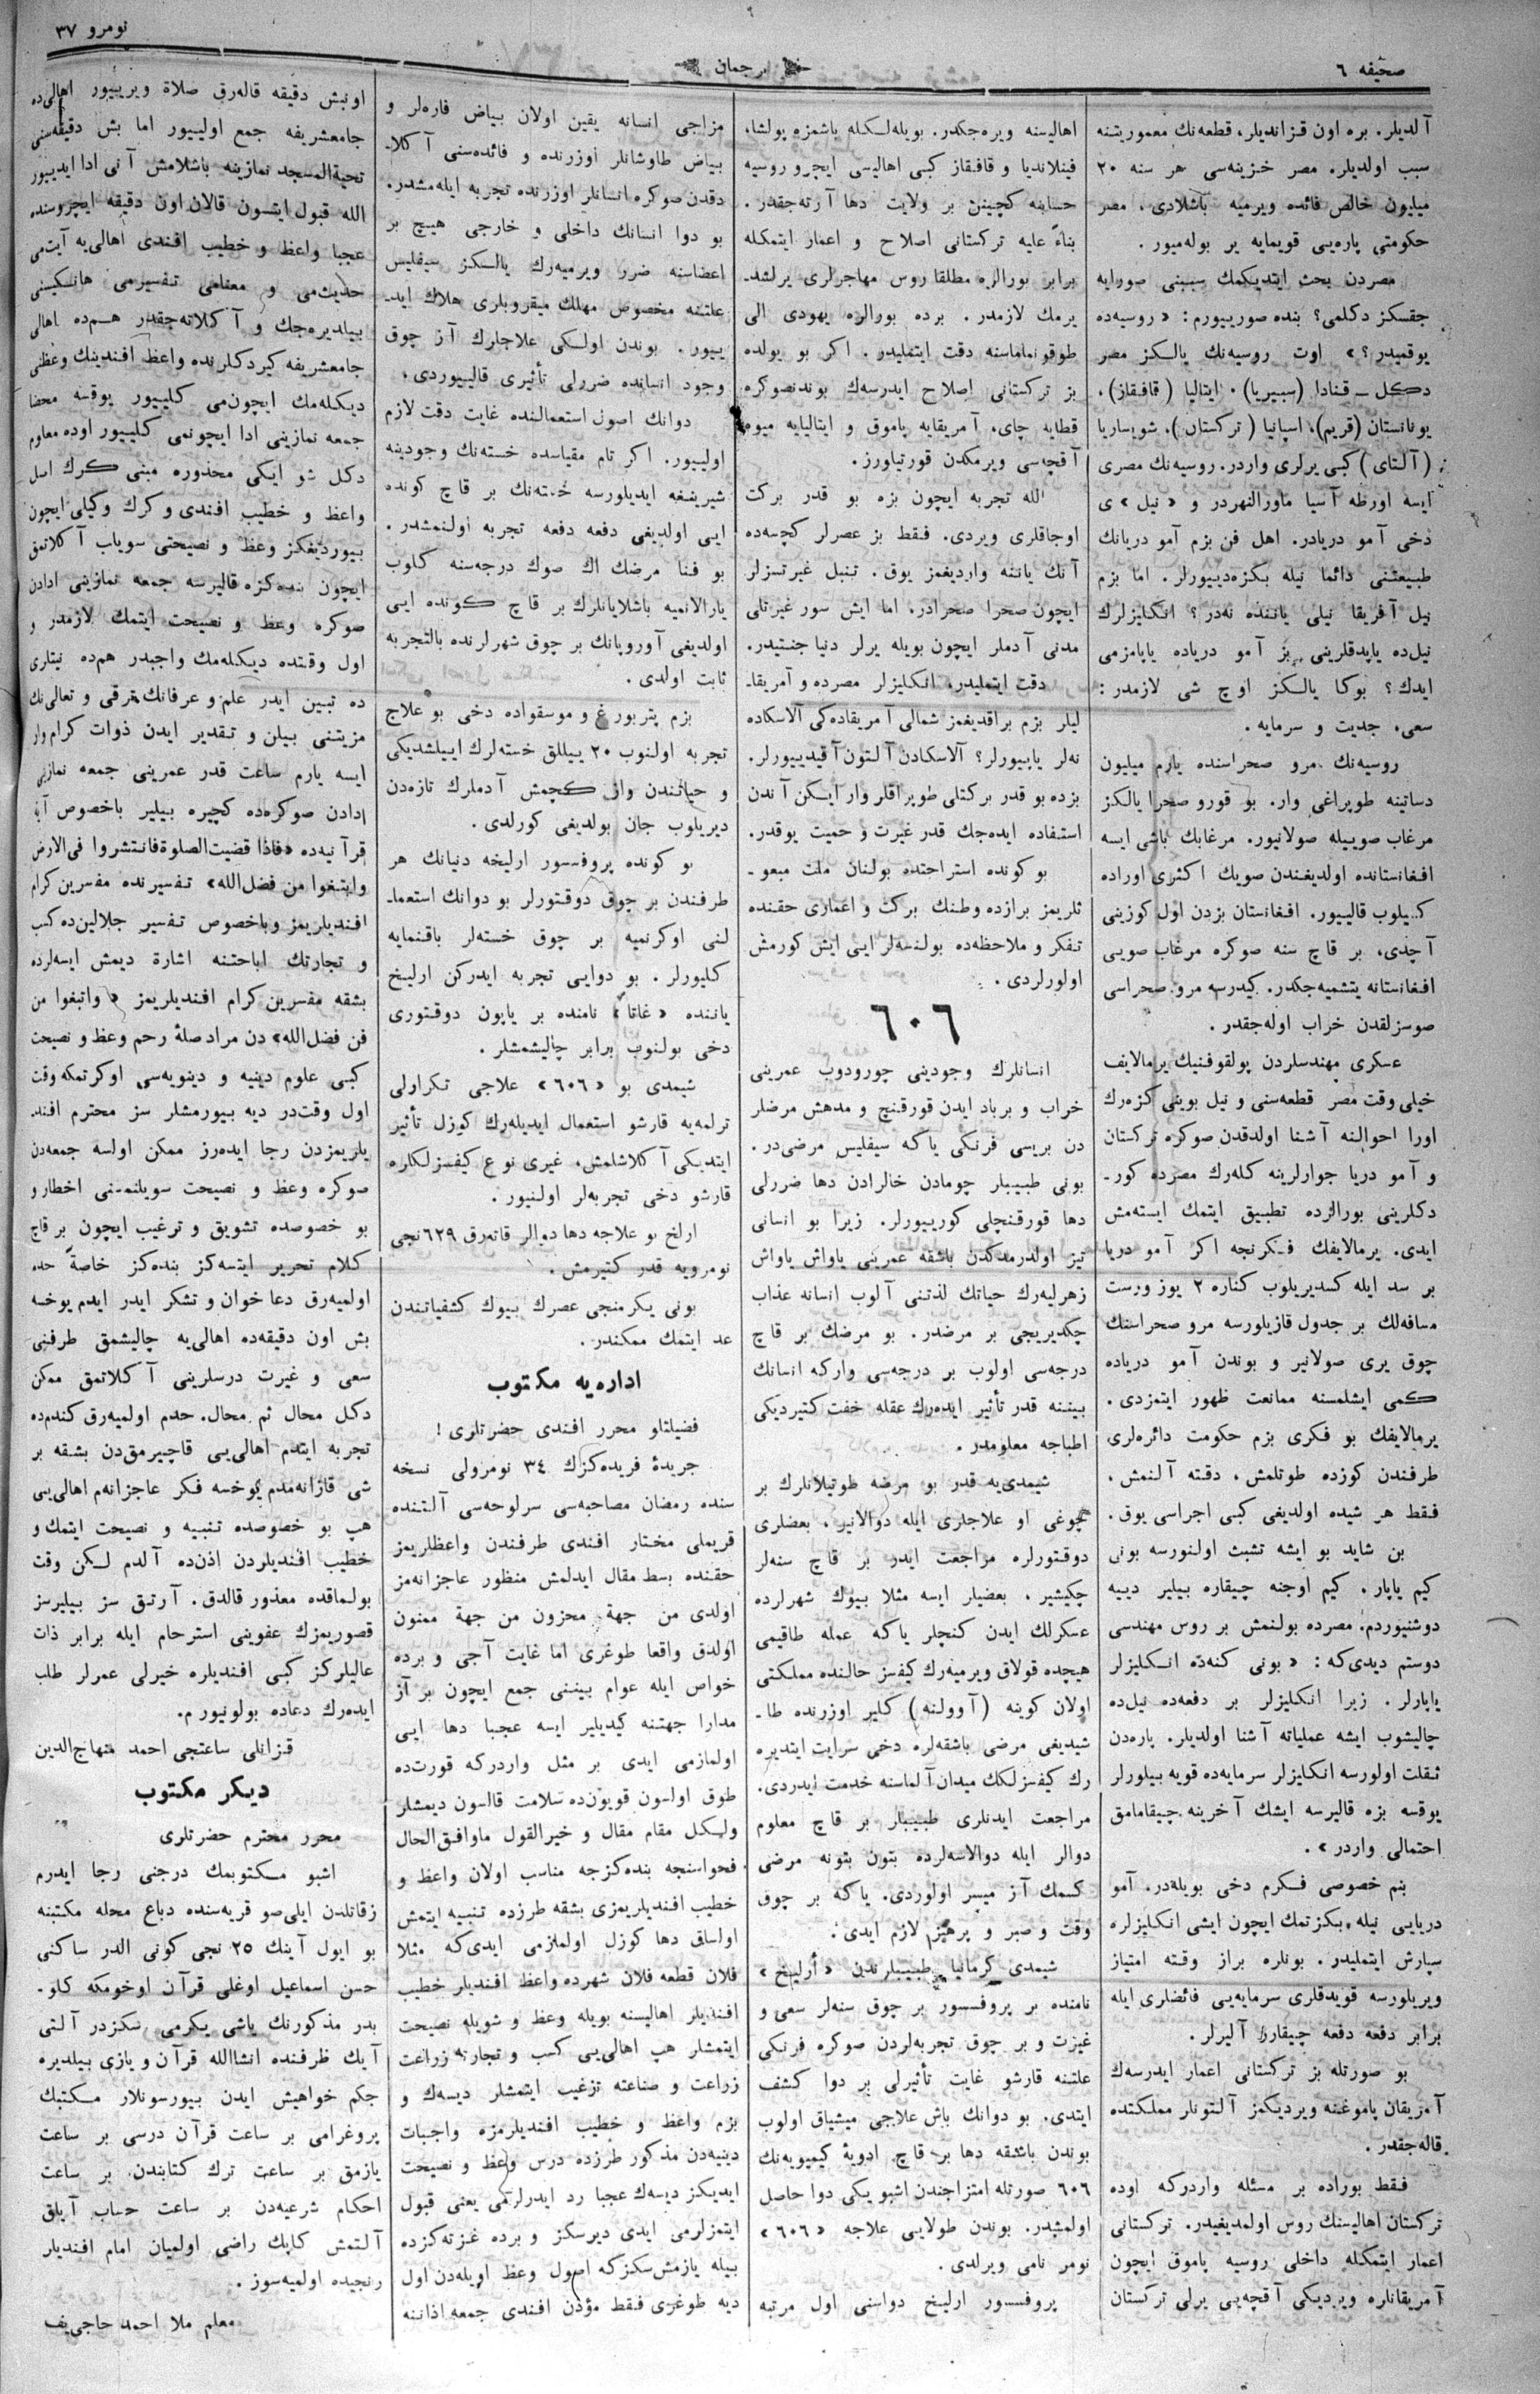 صحیفه ٦
ترجمان
نومرو ٣٧
آلدیلر. بره اون قزاندیلر، قطعه‌نك معموریتنه
سبب اولدیلر. مصر خزینه‌سی هر سنه ٢٠
میلیون خالص فائده ویرمیه باشلادی. مصر
حکومتی پاره‌یی قویمایه یر بوله‌میور.
مصردن بحث ایتدیکمك سببنی صورایه
جقسکز دکلمی؟ بنده صورییورم: «روسیه‌ده
یوقمیدر؟» اوت روسیه‌نك یالکز مصر
دکل ـ قنادا (سبیریا)، ایتالیا (قافقاز)،
یونانستان (قریم)، اسپانیا (ترکستان)، شویساریا
(آلتای) کبی یرلری واردر. روسیه‌نك مصری
ایسه اورطه آسیا ماورالنهردر و «نیل» ی
دخی آمو دریادر. اهل فن بزم آمو دریانك
طبیعتنی دائما نیله بکزه‌دییورلر. اما بزم
نیل آفریقا نیلی یاننده نه‌در؟ انکلیزلرك
نیل‌ده یاپدقلرینی بز آمو دریاده یاپامزمی
ایدك؟ بوکا یالکز اوچ شی لازمدر:
سعی، جدیت و سرمایه.
روسیه‌نك مرو صحراسنده یارم میلیون
دساتینه طوپراغی وار. بو قورو صحرا یالکز
مرغاب صوییله صولانیور. مرغابك باشی ایسه
افغانستانده اولدیغندن صویك اکثری اوراده
کسیلوب قالییور. افغانستان بزدن اول کوزینی
آچدی، بر قاچ سنه صوکره مرغاب صویی
افغانستانه یتشمیه‌جکدر. کیدرسه مرو صحراسی
صوسزلقدن خراب اوله‌جقدر.
عسکری مهندسلردن پولقوفنیك یرمالایف
خیلی وقت مصر قطعه‌سنی و نیل بوینی کزه‌رك
اورا احوالنه آشنا اولدقدن صوکره ترکستان
و آمو دریا جوارلرینه کله‌رك مصرده کور-
دکلرینی بورالرده تطبیق ایتمك ایسته‌مش
ایدی. یرمالایفك فکرنجه اکر آمو دریا
بر سد ایله کسدیریلوب کناره ٢ یوز ویرست
مسافه‌لك بر جدول قازیلورسه مرو صحراسنك
چوق یری صولانیر و بوندن آمو دریاده
کمی ایشلمسنه ممانعت ظهور ایتمزدی.
یرمالایفك بو فکری بزم حکومت دائره‌لری
طرفندن کوزده طوتلمش، دقته آلنمش،
فقط هر شیده اولدیغی کبی اجراسی یوق.
بن شاید بو ایشه تشبث اولنورسه بونی
کیم یاپار. کیم اوجنه چیقاره بیلیر دییه
دوشنیوردم. مصرده بولنمش بر روس مهندسی
دوستم دیدی‌که: «بونی کنه‌ده انکلیزلر
یاپارلر. زیرا انکلیزلر بر دفعه‌ده نیل‌ده
چالیشوب ایشه عملیاته آشنا اولدیلر. پاره‌دن
ثقلت اولورسه انکلیزلر سرمایه‌ده قویه بیلورلر
یوقسه بزه قالیرسه ایشك آخرینه چیقامامق
احتمالی واردر».
بنم خصوصی فکرم دخی بویله‌در. آمو
دریایی نیله بکزتمك ایچون ایشی انکلیزلره
سپارش ایتملیدر. بونلره براز وقته امتیاز
ویریلورسه قویدقلری سرمایه‌یی فائضلری ایله
برابر دفعه دفعه چیقارر آلیرلر.
بو صورتله بز ترکستانی اعمار ایدرسه‌ك
آمریقان پاموغنه ویردیکمز آلتونلر مملکتده
قاله‌جقدر.
فقط بوراده بر مسئله واردرکه اوده
ترکستان اهالیسنك روس اولمدیغیدر. ترکستانی
اعمار ایتمکله داخلی روسیه پاموق ایچون
آمریقانلره ویردیکی آقچه‌یی یرلی ترکستان
اهالیسنه ویره‌جکدر. بویله‌لکله یاشمزه پولشا،
فینلاندیا و قافقاز کبی اهالیسی ایچرو روسیه
حسابنه کچینن بر ولایت دها آرته‌جقدر.
بناءً علیه ترکستانی اصلاح و اعمار ایتمکله
برابر بورالره مطلقا روس مهاجرلری یرلشد-
یرمك لازمدر. برده بورالره یهودی الی
طوقونماماسنه دقت ایتملیدر. اکر بو یولده
بز ترکستانی اصلاح ایدرسه‌ك بوندنصوکره
قطایه چای، آمریقایه پاموق و ایتالیایه میوه
آقچه‌سی ویرمکدن قورتیلورز.
الله تجربه ایچون بزه بو قدر برکت
اوجاقلری ویردی. فقط بز عصرلر کچسه‌ده
آنك یاننه واردیغمز یوق. تنبل غیرتسزلر
ایچون صحرا صحرادر، اما ایش سور غیرتلی
مدنی آدملر ایچون بویله یرلر دنیا جنتیدر.
دقت ایتملیدر، انکلیزلر مصرده و آمریقا-
لیلر بزم براقدیغمز شمالی آمریقاده‌کی آلاسکاده
نه‌لر یاپییورلر؟ آلاسکادن آلتون آقیدییورلر.
بزده بو قدر برکتلی طوپراقلر وار ایکن آندن
استفاده ایده‌جك قدر غیرت و حمیت یوقدر.
بو کونده استراحتده بولنان ملت مبعو-
ثلریمز برازده وطنك برکت و اعماری حقنده
تفکر و ملاحظه‌ده بولنسه‌لر ایی ایش کورمش
اولورلردی.
٦٠٦
انسانلرك وجودینی چورودوب عمرینی
خراب و برباد ایدن قورقنچ و مدهش مرضلر
دن بریسی فرنکی یاکه سیفلیس مرضی‌در.
بونی طبیبلر چومادن خالرادن دها ضررلی
دها قورقنچلی کورییورلر. زیرا بو انسانی
تیز اولدرمدکدن باشقه عمرینی یاواش یاواش
زهرلیه‌رك حیاتك لذتنی آلوب انسانه عذاب
چکدیریجی بر مرضدر. بو مرضك بر قاچ
درجه‌سی اولوب بر درجه‌سی وارکه انسانك
بیننه قدر تأثیر ایده‌رك عقله خفت کتیردیکی
اطباجه معلومدر.
شیمدی‌یه قدر بو مرضه طوتیلانلرك بر
چوغی او علاجلری ایله دوالانیر، بعضلری
دوقتورلره مراجعت ایدر بر قاچ سنه‌لر
چکیشیر، بعضیلر ایسه مثلا بیوك شهرلرده
عسکرلك ایدن کنجلر یاکه عمله طاقیمی
هیچده قولاق ویرمیه‌رك کیفسز حالنده مملکتی
اولان کوینه (آوولنه) کلیر اوزرنده طا-
شیدیغی مرضی باشقه‌لره دخی سرایت ایتدیره
رك کیفسزلکك میدان آلماسنه خدمت ایدردی.
مراجعت ایدنلری طبیبلر بر قاچ معلوم
دوالر ایله دوالاسه‌لرده بتون بتونه مرضی
کسمك آز میسر اولوردی. یاکه بر چوق
وقت و صبر و پرهیز لازم ایدی.
شیمدی کرمانیا طبیبلرندن «أرلیخ»
نامنده بر پروفسسور بر چوق سنه‌لر سعی و
غیرت و بر چوق تجربه‌لردن صوکره فرنکی
علتنه قارشو غایت تأثیرلی بر دوا کشف
ایتدی. بو دوانك باش علاجی میشیاق اولوب
بوندن باشقه دها بر قاچ ادویۀ کیمیویه‌نك
٦٠٦ صورتله امتزاجندن اشبو یکی دوا حاصل
اولمشدر. بوندن طولایی علاجه «٦٠٦»
نومر نامی ویرلدی.
پروفسسور ارلیخ دواسنی اول مرتبه
مزاجی انسانه یقین اولان بیاض فاره‌لر و
بیاض طاوشانلر اوزرنده و فائده‌سنی آکلا-
دقدن صوکره انسانلر اوزرنده تجربه ایله‌مشدر.
بو دوا انسانك داخلی و خارجی هیچ بر
اعضاسنه ضرر ویرمیه‌رك یالکز سیفلیس
علتنه مخصوص مهلك میقروبلری هلاك اید-
ییور. بوندن اولکی علاجلرك آز چوق
وجود انسانده ضررلی تأثیری قالییوردی.
دوانك اصول استعمالنده غایت دقت لازم
اولییور. اکر تام مقیاسده خسته‌نك وجودینه
شیرینغه ایدیلورسه خسته‌نك بر قاچ کونده
ایی اولدیغی دفعه دفعه تجربه اولنمشدر.
بو فنا مرضك اك صوك درجه‌سنه کلوب
یارالانمیه باشلایانلرك بر قاچ کونده ایی
اولدیغی آوروپانك بر چوق شهرلرنده بالتجربه
ثابت اولدی.
بزم پتربورغ و موسقواده دخی بو علاج
تجربه اولنوب ٢٠ ییللق خسته‌لرك اییلشدیکی
و حیاتندن واز کچمش آدملرك تازه‌دن
دیریلوب جان بولدیغی کورلدی.
بو کونده پروفسسور ارلیخه دنیانك هر
طرفندن بر چوق دوقتورلر بو دوانك استعما-
لنی اوکرنمیه بر چوق خسته‌لر باقنمایه
کلیورلر. بو دوایی تجربه ایدرکن ارلیخ
یاننده «غاتا» نامنده بر یاپون دوقتوری
دخی بولنوب برابر چالیشمشلر.
شیمدی بو «٦٠٦» علاجی تکراولی
ترلمه‌یه قارشو استعمال ایدیله‌رك کوزل تأثیر
ایتدیکی آکلاشلمش، غیری نوع کیفسزلکلره
قارشو دخی تجربه‌لر اولنیور.
ارلخ بو علاجه دها دوالر قاته‌رق ٦٢٩نجی
نومرویه قدر کتیرمش.
بونی یکرمنجی عصرك بیوك کشفیاتندن
عد ایتمك ممکندر.
اداره‌یه مکتوب
فضیلتلو محرر افندی حضرتلری!
جریدۀ فریده‌کزك ٣٤ نومرولی نسخه
سنده رمضان مصاحبه‌سی سرلوحه‌سی آلتنده
قریملی مختار افندی طرفندن واعظلریمز
حقنده بسط مقال ایدلمش منظور عاجزانه‌مز
اولدی من جهة محزون من جهة ممنون
اولدق واقعا طوغری اما غایت آجی و برده
خواص ایله عوام بیننی جمع ایچون بر آز
مدارا جهتنه کیدیلیر ایسه عجبا دها ایی
اولمازمی ایدی بر مثل واردرکه قورت‌ده
طوق اولسون قویون‌ده سلامت قالسون دیمشلر
ولیکل مقام مقال و خیرالقول ماوافق‌الحال
فحواسنجه بنده‌کزجه مناسب اولان واعظ و
خطیب افندیلریمزی بشقه طرزده تنبیه ایتمش
اولساق دها کوزل اولمازمی ایدی‌که مثلا
فلان قطعه فلان شهرده واعظ افندیلر خطیب
افندیلر اهالیسنه بویله وعظ و شویله نصیحت
ایتمشلر هپ اهالی‌یی کسب و تجارته زراعت
زراعت و صناعته ترغیب ایتمشلر دیسه‌ك و
بزم واعظ و خطیب افندیلرمزه واجبات
دینیه‌دن مذکور طرزده درس وعظ و نصیحت
ایدیکز دیسه‌ك عجبا رد ایدرلرمی یعنی قبول
ایتمزلرمی ایدی دیرسکز و برده غزته‌کزده
بیله یازمش‌سکزکه اصول وعظ اویله‌دن اول
دیه طوغری فقط مؤذن افندی جمعه اذاننه
اونبش دقیقه قاله‌رق صلاة ویرییور اهالی‌ده
جامعشریفه جمع اولییور اما بش دقیقه‌سنی
تحیةالمسجد نمازینه باشلامش آنی ادا ایدییور
الله قبول ایتسون قالان اون دقیقه ایچروسنده
عجبا واعظ و خطیب افندی اهالی‌یه آیت‌می
حدیث‌می و معنامی تفسیرمی هانکیسنی
بیلدیره‌جك و آکلاته‌جقدر هم‌ده اهالی
جامعشریفه کیردکلرنده واعظ افندینك وعظنی
دیکله‌مك ایچون‌می کلییور یوقسه محضا
جمعه نمازینی ادا ایچونمی کلییور اوده معلوم
دکل شو ایکی محذوره مبنی کرك اسل
واعظ و خطیب افندی و کرك وکیلی ایچون
بیوردیغکز وعظ و نصیحتی سویلب آکلاتمق
ایچون بنده‌کزه قالیرسه جمعه نمازینی ادادن
صوکره وعظ و نصیحت ایتمك لازمدر و
اول وقتده دیکله‌مك واجبدر هم‌ده نیتلری
ده تبین ایدر علم و عرفانك ترقی و تعالی‌نك
مزیتنی بیلن و تقدیر ایدن ذوات کرام وار
ایسه یارم ساعت قدر عمرینی جمعه نمازنی
ادادن صوکره‌ده کچیره بیلیر باخصوص آیة
قرآنیه‌ده «فاذا قضیت‌الصلوة فانتشروا فی‌الارض
وابتغوا من فضل‌الله» تفسیرنده مفسرین کرام
افندیلریمز وباخصوص تفسیر جلالین‌ده کسب
و تجارتك اباحتنه اشارة دیمش ایسه‌لرده
بشقه مفسرین کرام افندیلریمز «وابتغوا من
فن فضل‌الله» دن مراد صلۀ رحم وعظ و نصیحت
کبی علوم دینیه و دینویه‌سی اوکرتمکه وقت
اول وقت‌در دیه بیورمشلر سز محترم افند-
یلریمزدن رجا ایده‌رز ممکن اولسه جمعه‌دن
صوکره وعظ و نصیحت سویلنمسنی اخطار و
بو خصوصده تشویق و ترغیب ایچون بر قاچ
کلام تحریر ایتسه‌کز بنده‌کز خاصةً حده
اولمیه‌رق دعا خوان و تشکر ایدر ایدم یوخسه
بش اون دقیقه‌ده اهالی‌یه چالیشمق طرفنی
سعی و غیرت درسلرینی آکلاتمق ممکن
دکل محال ثم محال. حدم اولمیه‌رق کندم‌ده
تجربه ایتدم اهالی‌یی قاچیرمق‌دن بشقه بر
شی قازانه‌مدم یوخسه فکر عاجزانه‌م اهالی‌یی
هب بو خصوصده تنبیه و نصیحت ایتمك و
خطیب افندیلردن اذن‌ده آلدم لکن وقت
بولماقده معذور قالدق. آرتق سز بیلیرسز
قصوریمزك عفوینی استرحام ایله برابر ذات
عالیلرکز کبی افندیلره خیرلی عمرلر طلب
ایده‌رك دعاده بولونیورم.
قزانلی ساعتجی احمد منهاج‌الدین
دیکر مکتوب
محرر محترم حضرتلری
اشبو مکتوبمك درجنی رجا ایدرم
زقاتلدن ایلی‌صو قریه‌سنده دباغ محله مکتبنه
بو ایول آینك ٢٥ نجی کونی الدر ساکنی
حسن اسماعیل اوغلی قرآن اوخومکه کلو-
بدر مذکورنك یاشی یکرمی سکزدر آلتی
آیك ظرفنده انشاالله قرآن و یازی بیلدیره
جکم خواهیش ایدن بیورسونلار مکتبك
پروغرامی بر ساعت قرآن درسی بر ساعت
یازمق بر ساعت ترك کتابندن بر ساعت
احکام شرعیه‌دن بر ساعت حساب آیلق
آلتمش کاپك راضی اولمیان امام افندیلر
رنجیده اولمیه‌سوز.
معلم ملا احمد حاجی‌یف